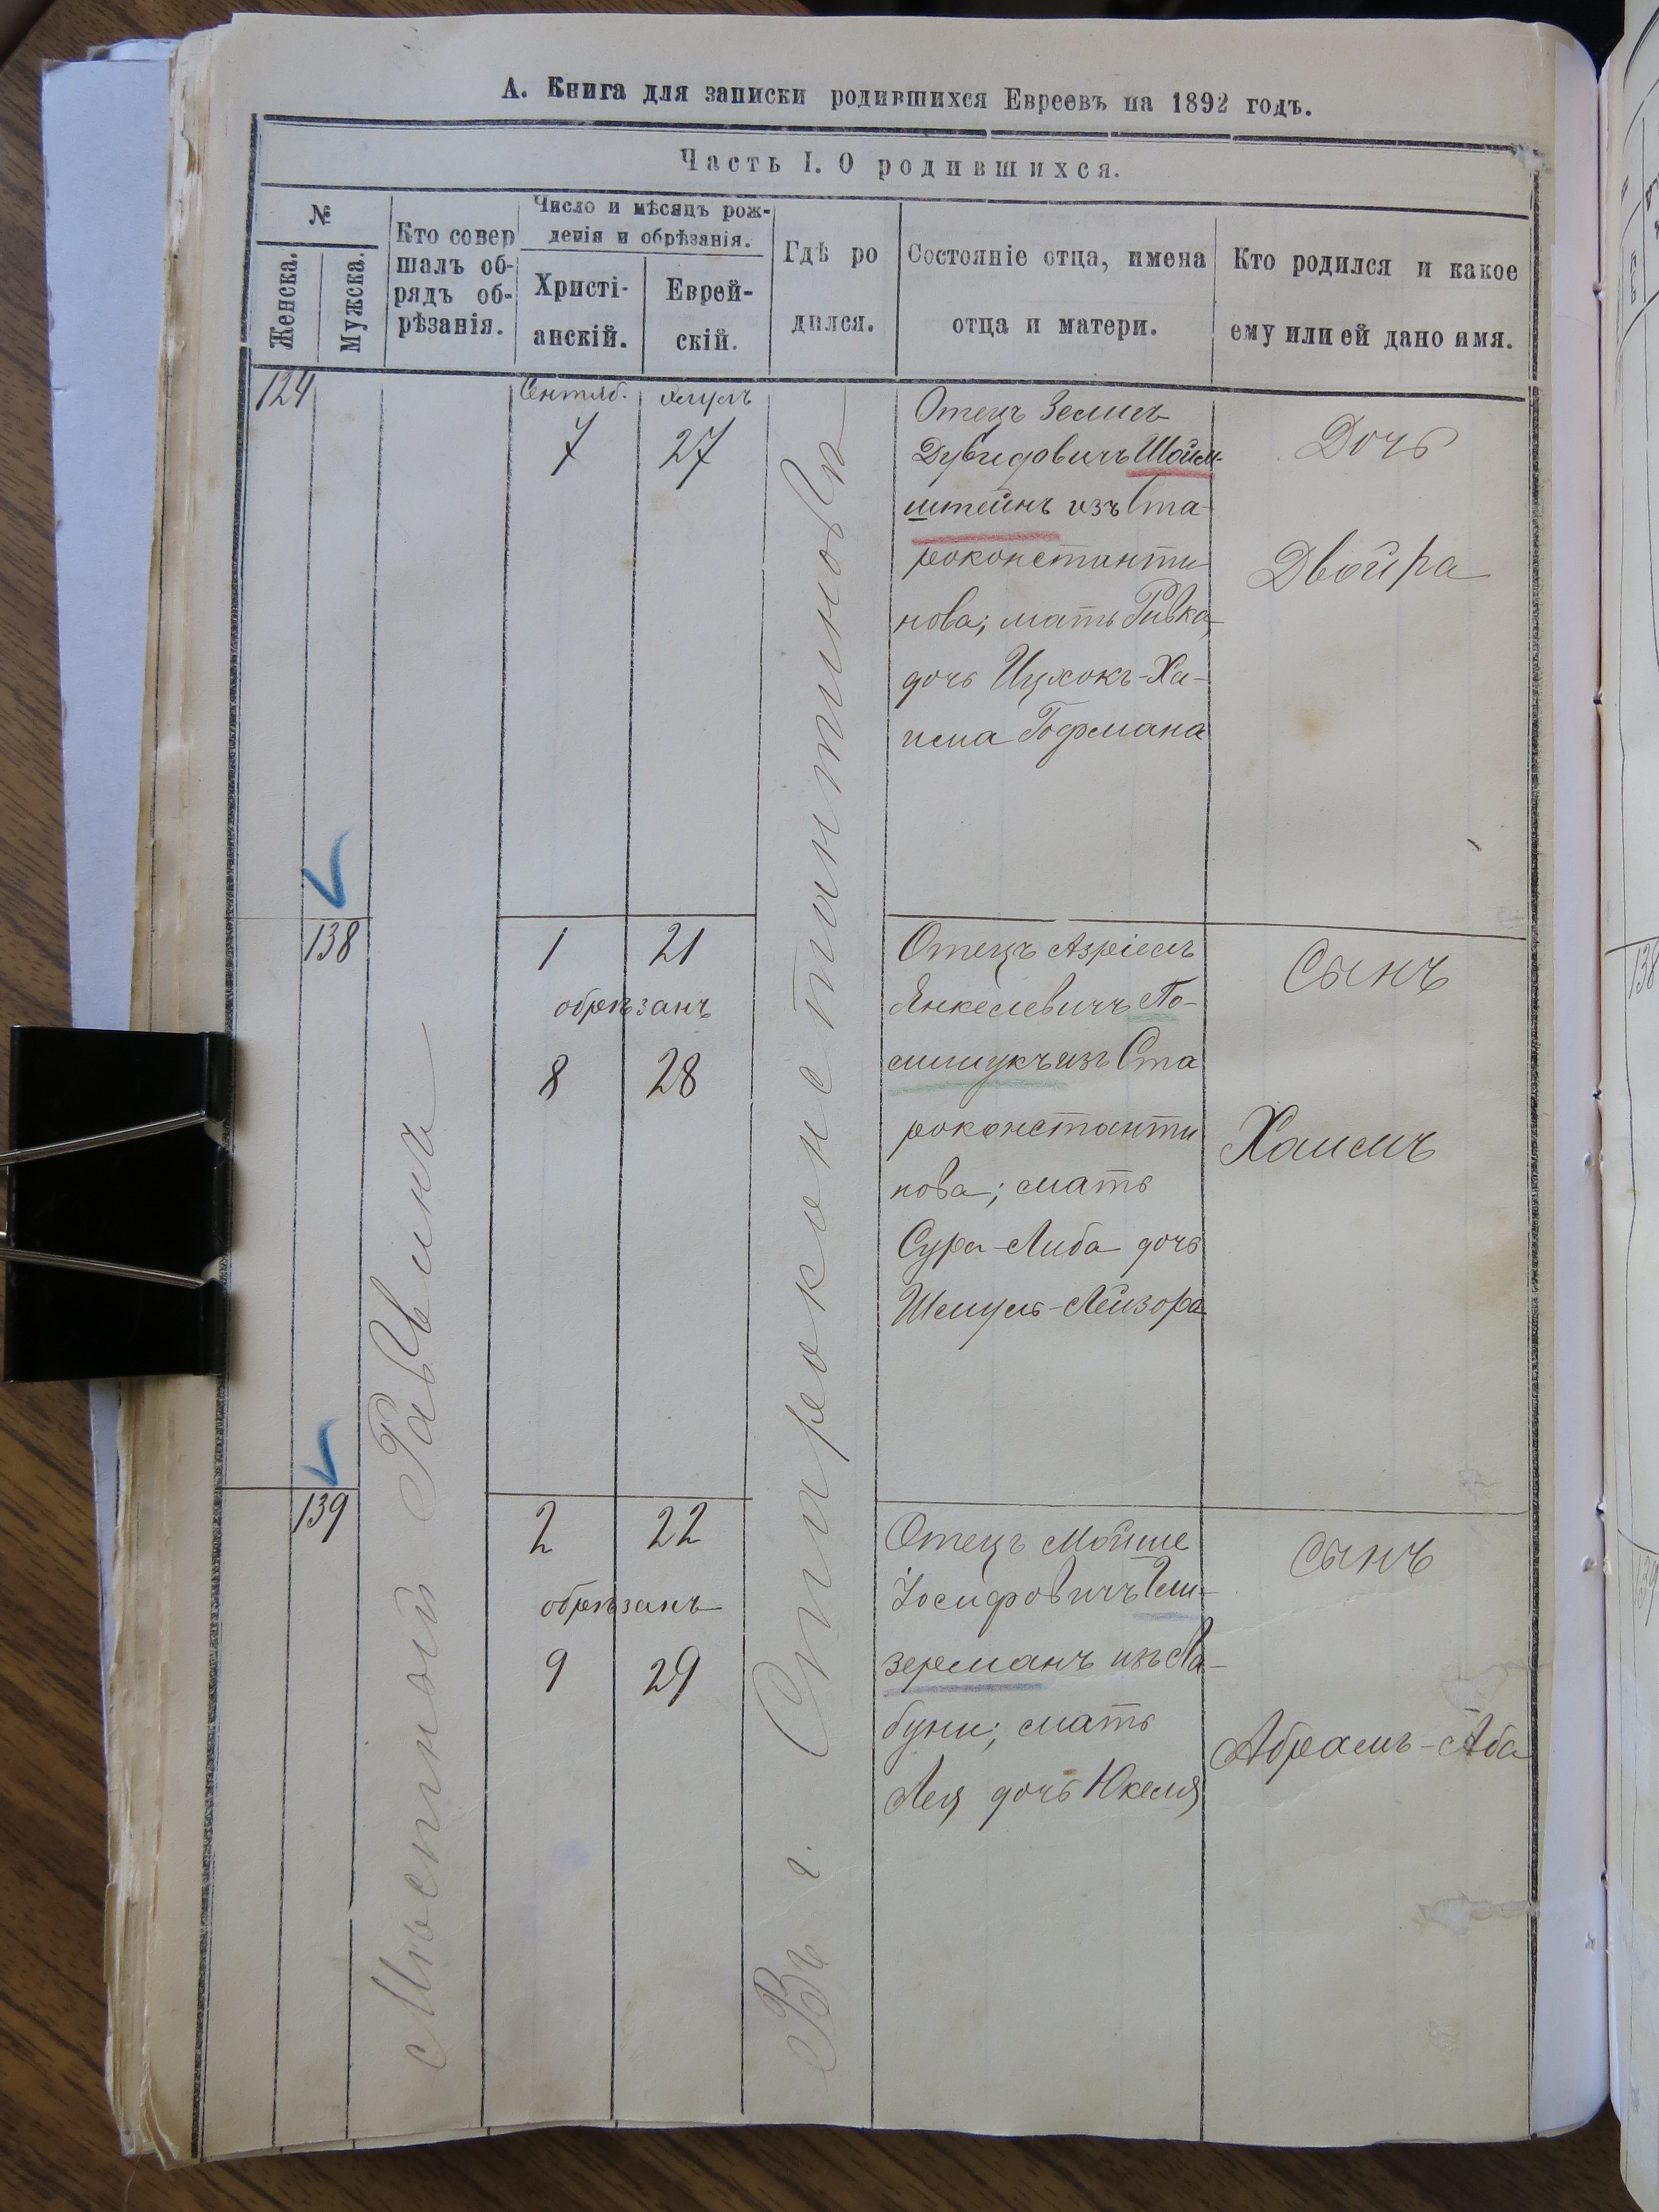 А. Книга для записки родившихся Евреевъ на 1892 годъ.
Часть I. О родившихся.
№
Женска.
Мужска.
Кто совер
шалъ об-
рядъ об-
рѣзанія.
Число и мѣсяцъ рож-
денія и обрѣзанія.
Христі-
анскій.
Еврей-
скій.
Гдѣ ро
дился.
Состояніе отца, имена
отца и матери.
Кто родился и какое
ему или ей дано имя.
Мѣстный Раввинъ
Въ г. Староконстантиновѣ
124
Сентяб. Элулъ
7 27
Отецъ Зелигъ
Дувидовичъ Шойм-
штейнъ изъ Ста-
роконстанти
нова; мать Ривка,
дочь Ицхокъ-Ха-
има Гофмана
Дочь
Двойра
138
1 21
обрѣзанъ
8 28
Отецъ Азріель
Янкелевичъ По-
лищукъ изъ Ста
роконстанти
нова; мать
Сура-Либа дочь
Шмуль-Лейзора
Сынъ
Хаимъ
139
2 22
обрѣзанъ
9 29
Отецъ Мойше
Іосифовичъ Гли-
зерманъ изъ Ла-
буни; мать
Лея дочь Юкеля
Сынъ
Абрамъ-Аба
138
139